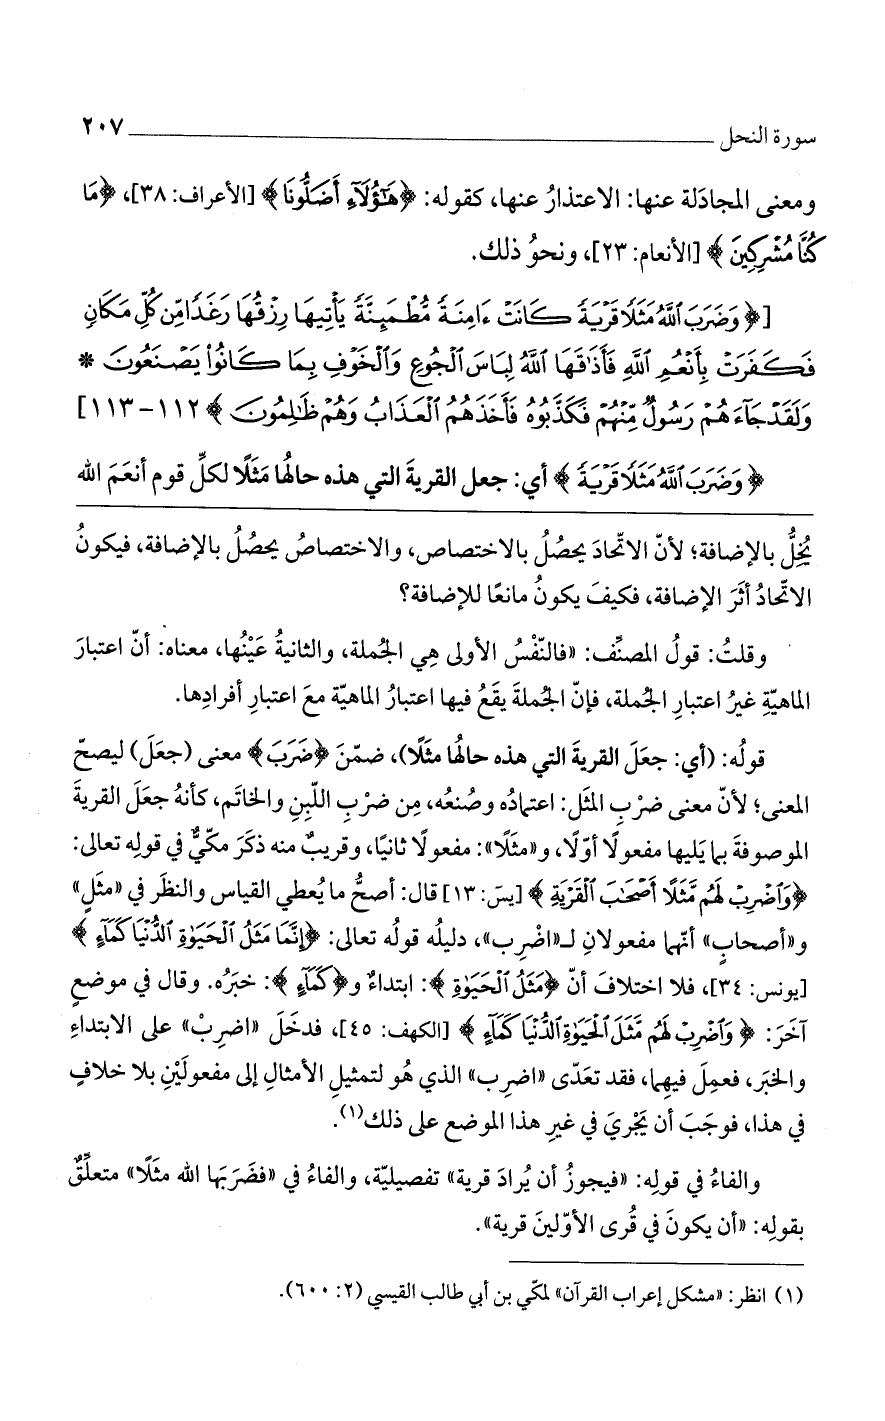 سورة النحل ٢٠٧
ومعنى المجادَلة عنها: الاعتذارُ عنها، كقوله: ﴿هَٰٓؤُلَآءِ أَضَلُّونَا﴾ [الأعراف: ٣٨]، ﴿مَا
كُنَّا مُشْرِكِينَ﴾ [الأنعام: ٢٣]، ونحوُ ذلك.
[﴿وَضَرَبَ ٱللَّهُ مَثَلًا قَرْيَةً كَانَتْ ءَامِنَةً مُّطْمَئِنَّةً يَأْتِيهَا رِزْقُهَا رَغَدًا مِّن كُلِّ مَكَانٍ
فَكَفَرَتْ بِأَنْعُمِ ٱللَّهِ فَأَذَٰقَهَا ٱللَّهُ لِبَاسَ ٱلْجُوعِ وَٱلْخَوْفِ بِمَا كَانُوا۟ يَصْنَعُونَ *
وَلَقَدْ جَآءَهُمْ رَسُولٌ مِّنْهُمْ فَكَذَّبُوهُ فَأَخَذَهُمُ ٱلْعَذَابُ وَهُمْ ظَٰلِمُونَ﴾ ١١٢-١١٣]
﴿وَضَرَبَ ٱللَّهُ مَثَلًا قَرْيَةً﴾ أي: جعل القريةَ التي هذه حالُها مَثَلًا لكلِّ قوم أنعَمَ الله
يُخِلُّ بالإضافة؛ لأنّ الاتّحادَ يحصُلُ بالاختصاص، والاختصاصُ يحصُلُ بالإضافة، فيكونُ
الاتّحادُ أثَرَ الإضافة، فكيفَ يكونُ مانعًا للإضافة؟
وقلتُ: قولُ المصنِّف: «فالنّفْسُ الأولى هِي الجُملة، والثانيةُ عَيْنُها، معناه: أنّ اعتبارَ
الماهيّةِ غيرُ اعتبارِ الجُملة، فإنّ الجُملةَ يقَعُ فيها اعتبارُ الماهيّة معَ اعتبارِ أفرادِها.
قولُه: (أي: جعَلَ القريةَ التي هذه حالُها مثَلًا)، ضمّنَ ﴿ضَرَبَ﴾ معنى (جعَلَ) ليصحّ
المعنى؛ لأنّ معنى ضربِ المثَل: اعتمادُه وصُنعُه، مِن ضرْبِ اللّبِنِ والخاتَم، كأنهُ جعَلَ القريةَ
الموصوفةَ بما يَليها مفعولًا أوّلًا، و«مثَلًا»: مفعولًا ثانيًا، وقريبٌ منه ذكَرَ مكّيٌّ في قولِه تعالى:
﴿وَٱضْرِبْ لَهُم مَّثَلًا أَصْحَٰبَ ٱلْقَرْيَةِ﴾ [يسَ: ١٣] قال: أصحُّ ما يُعطي القياس والنظَر في «مثَلٍ»
و«أصحابٍ» أنّهما مفعولانِ لـ«اضْرِب»، دليلُه قولُه تعالى: ﴿إِنَّمَا مَثَلُ ٱلْحَيَوٰةِ ٱلدُّنْيَا كَمَآءٍ﴾
[يونس: ٣٤]، فلا اختلافَ أنّ ﴿مَثَلُ ٱلْحَيَوٰةِ﴾: ابتداءٌ و﴿كَمَآءٍ﴾: خبَرُه. وقال في موضعٍ
آخَرَ: ﴿وَٱضْرِبْ لَهُم مَّثَلَ ٱلْحَيَوٰةِ ٱلدُّنْيَا كَمَآءٍ﴾ [الكهف: ٤٥]، فدخَلَ «اضرِبْ» على الابتداءِ
والخبَر، فعمِلَ فيهِما، فقد تعَدّى «اضرِب» الذي هُو لتمثيلِ الأمثالِ إلى مفعولَيْنِ بلا خلافٍ
في هذا، فوجَبَ أن يَجْريَ في غيرِ هذا الموضع على ذلك(١).
والفاءُ في قولِه: «فيجوزُ أن يُرادَ قرية» تفصيليّة، والفاءُ في «فضَرَبَها الله مثَلًا» متعلِّقٌ
بقولِه: «أن يكونَ في قُرى الأوّلينَ قرية».
(١) انظر: «مشكل إعراب القرآن» لمكّي بن أبي طالب القيسي (٢: ٦٠٠).